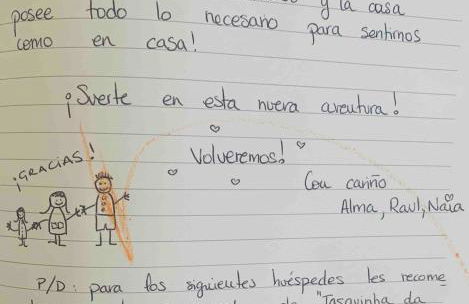 y la casa
posee todo lo necesario para sentirnos
como en casa!
¡Suerte en esta nueva aventura!
¡GRACIAS!
Volveremos!
Con cariño
Alma, Raul, Naia
P/D: para los siguientes huéspedes les recome
"Tasquinha da